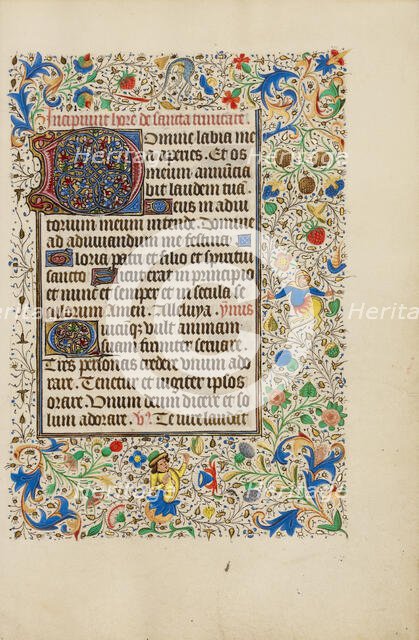 Incipiunt hore de sancta trinitate.
Domine labia me
a aperies. Et os
meum annūcia
bit laudem tuā.
Deus in adiu
torium meum intende. Domine
ad adiuvandum me festina.
Gloria patri et filio et spiritui
sancto Sicut erat in principio
et nunc et semper et in secula se
culorum amen. Alleluya. ymnus
Quicūq; vult animam
suam firmiter servare.
Tres personas credere unum ado
rare. Tenetur et iugiter ipsos
orare. Unum deum dicere et so
lum adorare. Te iure laudēt